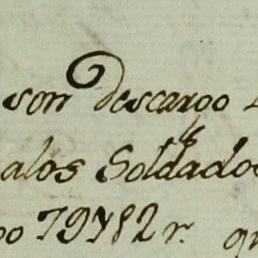 son Descargo
alos Soldados
79782 r.